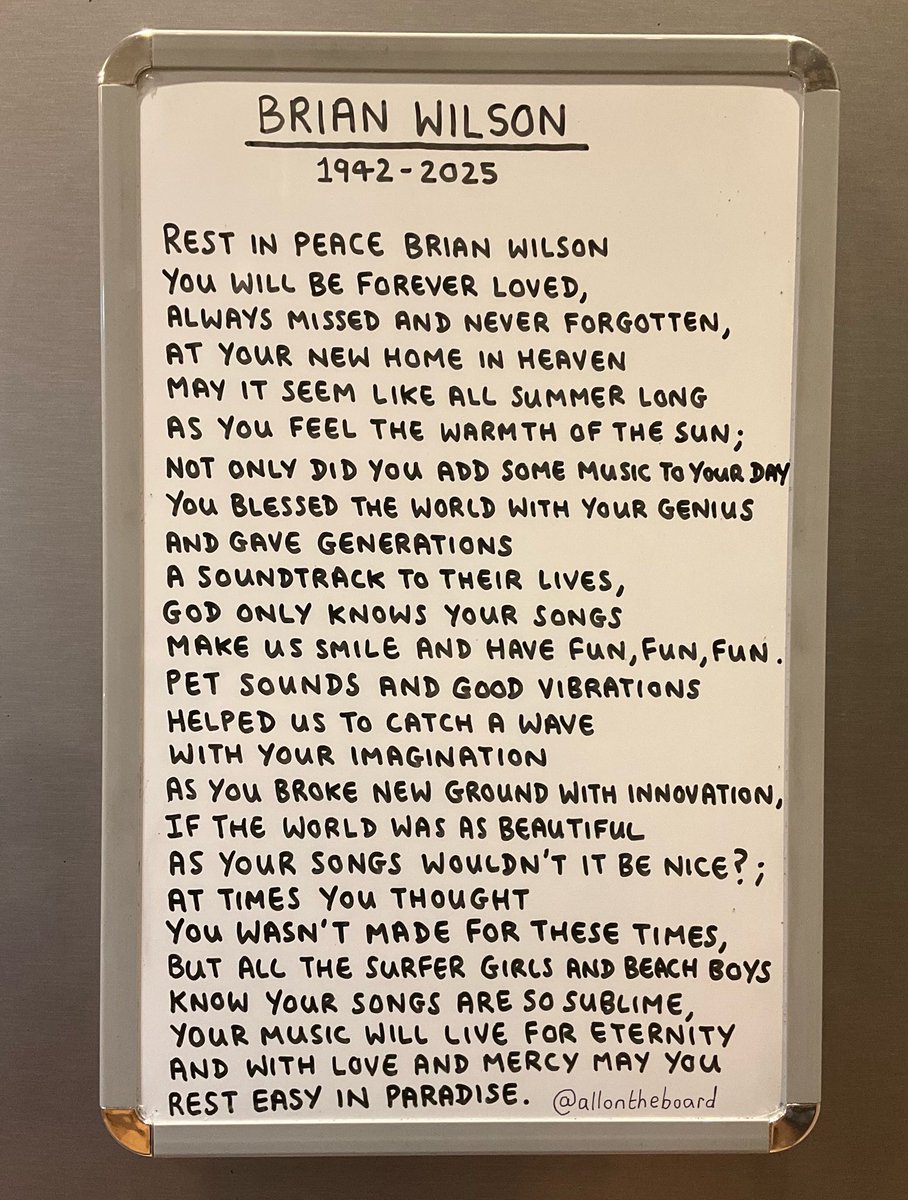 BRIAN WILSON
1942-2025
REST IN PEACE BRIAN WILSON
YOU WILL BE FOREVER LOVED,
ALWAYS MISSED AND NEVER FORGOTTEN,
AT YOUR NEW HOME IN HEAVEN
MAY IT SEEM LIKE ALL SUMMER LONG
AS YOU FEEL THE WARMTH OF THE SUN;
NOT ONLY DID YOU ADD SOME MUSIC TO YOUR DAY
YOU BLESSED THE WORLD WITH YOUR GENIUS
AND GAVE GENERATIONS
A SOUNDTRACK TO THEIR LIVES,
GOD ONLY KNOWS YOUR SONGS
MAKE US SMILE AND HAVE FUN, FUN, FUN.
PET SOUNDS AND GOOD VIBRATIONS
HELPED US TO CATCH A WAVE
WITH YOUR IMAGINATION
AS YOU BROKE NEW GROUND WITH INNOVATION,
IF THE WORLD WAS AS BEAUTIFUL
AS YOUR SONGS WOULDN'T IT BE NICE?;
AT TIMES YOU THOUGHT
YOU WASN'T MADE FOR THESE TIMES,
BUT ALL THE SURFER GIRLS AND BEACH BOYS
KNOW YOUR SONGS ARE SO SUBLIME,
YOUR MUSIC WILL LIVE FOR ETERNITY
AND WITH LOVE AND MERCY MAY YOU
REST EASY IN PARADISE. @allontheboard